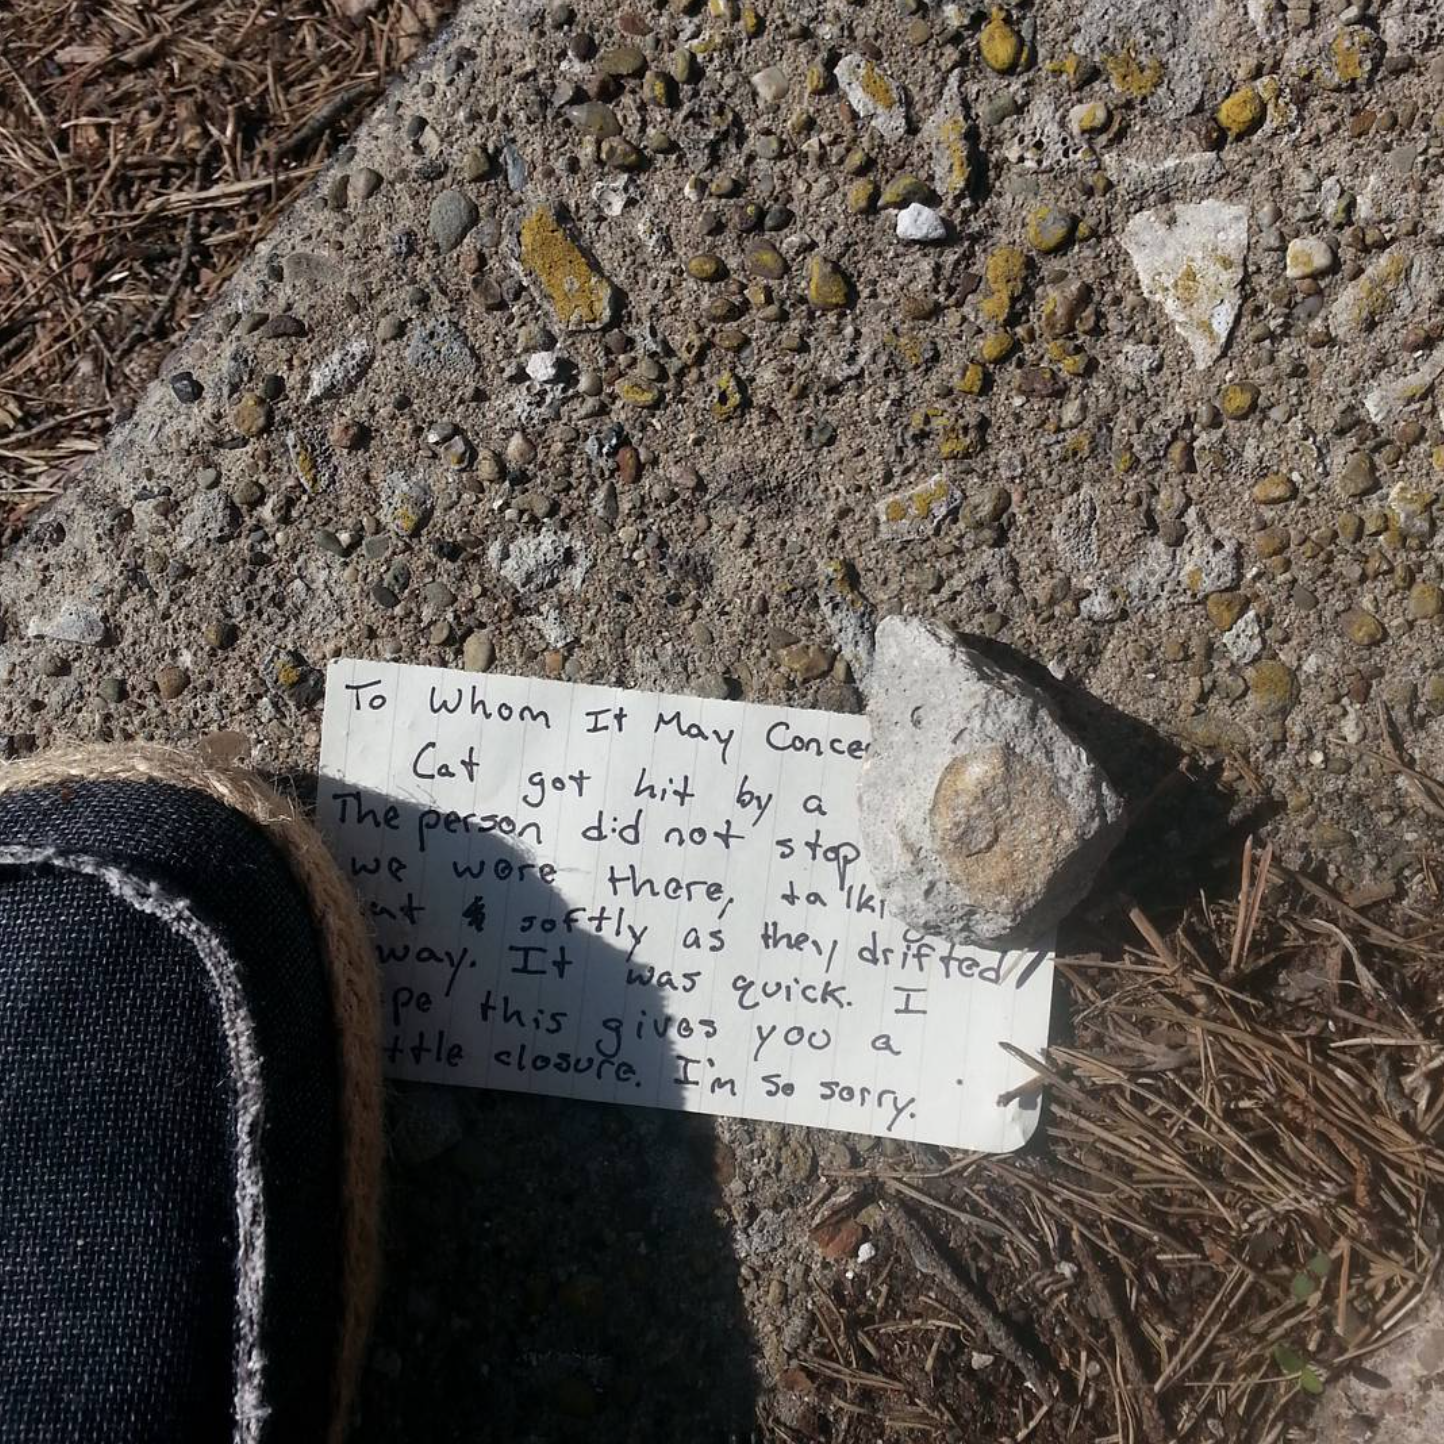 To Whom It May Conce
Cat got hit by a
The person did not stop
we were there, talki
at softly as they drifted
way. It was quick. I
pe this gives you a
ttle closure. I'm so sorry.